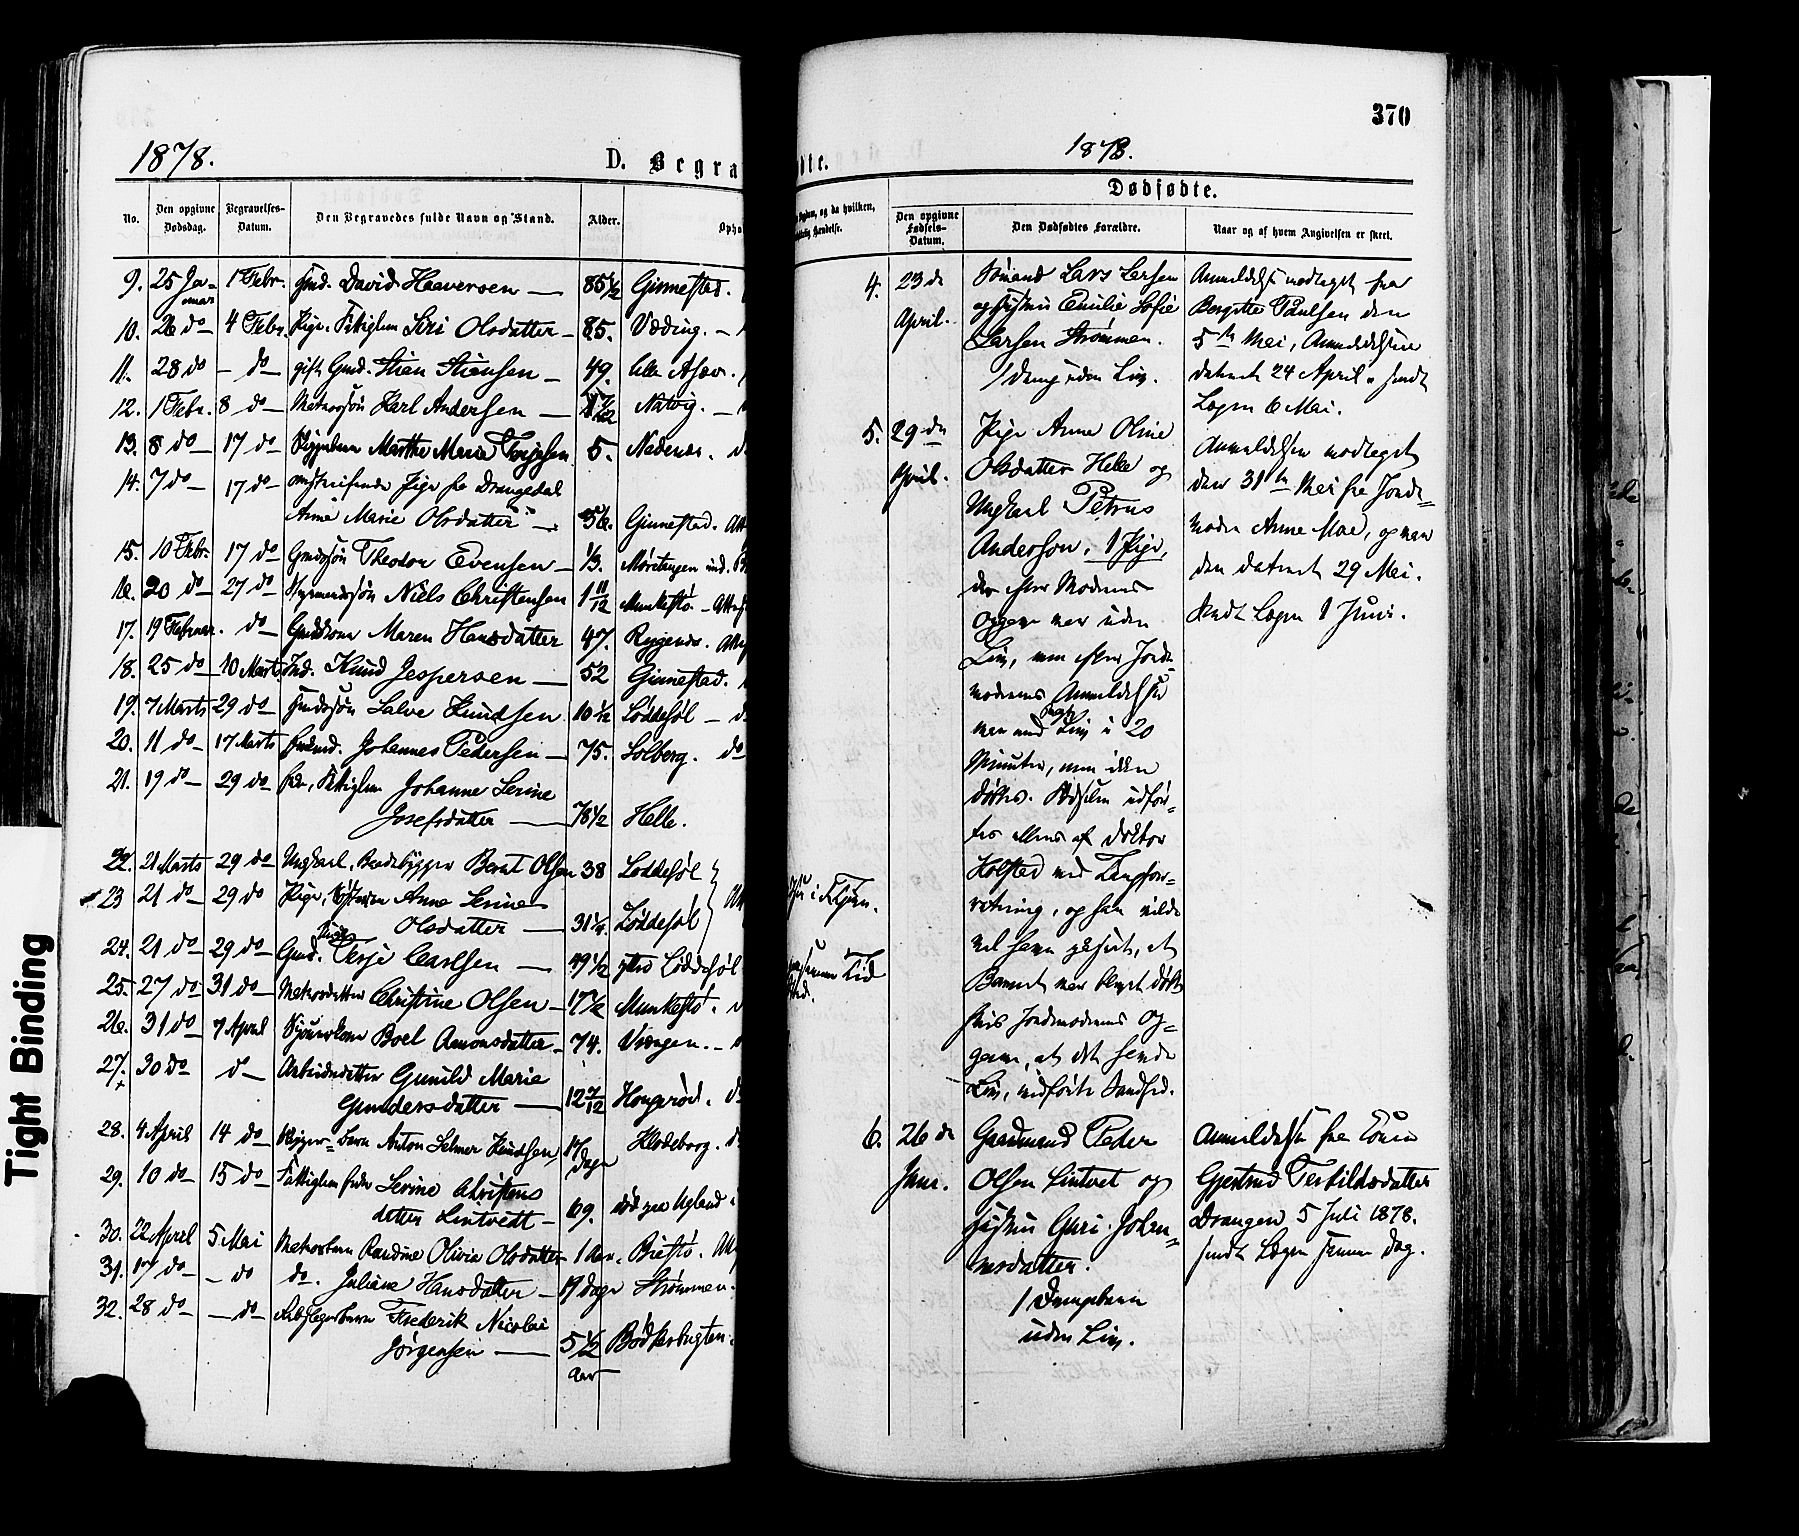 370
1878.
D. Begra
dte.
1878.
Dødfødte.
No.
Den opgivne
Dødsdag.
Begravelses-
Datum.
Den Begravedes fulde Navn og Stand.
Alder.
Opho
9. 25 Ja- 1 Febr. Gmd. David Haaversen — 85 1/2 Ginnestad.
nuar
10. 26 do 4 Febr. Pige, Fattiglem Siri Olsdatter — 85. Væding. —
11. 28 do — do — gift Gmd. Stian Stiansen — 49. lille Asdøv.
12. 1 Febr. 8 do — Matrossøn Karl Andersen — Natvig. —
13. 8 do — 17 do Marthe Marie Terjesen 5. Nedenæs. d
14. 7 do — 17 do — omstreifende Pige fra Drangedal
Anne Marie Olsdatter — 56. Ginnestad. Att
15. 10 Febr. 17 do — Gmdssøn Theodor Evensen — 1/3. ind.
16. 20 do — 27 do — Styrmandssøn Niels Christensen 1 11/12 Munkestø. — Attest
17. 19 Februar. do — Maren Hansdatter 47. Rygene. Attest
18. 25 do — 10 Marts Ind. Knud Jespersen — 52 Ginnestad.
19. 7 Marts 29 do — Gmdssøn Salve Knudsen 10 1/2 Løddesøl — d
20. 11 do — 17 Marts Johannes Pedersen — 75. Solberg. do
21. 19 do — 29 do Fattiglem Johanne Serine
Josefsdatter — 78 1/2 Helle.
22. 21 Marts 29 do — Ungkarl, Baadebygger Bernt Olsen 38 Løddesøl
23 21 do — 29 do Pige, Søsteren Anne Serine
Olsdatter — 31 1/4. Løddesøl
24. 21 do — 29 do — Gmd. Terje Carlsen — 49 1/2 ytre Løddesøl
25. 27 do 31 do — Matrosdatter Christine Olsen — 17 1/2 Munkestø. d
26. 31 do — 7 April Boel Amonsdatter — 74. Vrengen. —
27. 30 do d — Arbeidsdatter Gunild Marie
Gundersdatter — 12 7/12 Hongerød. d
28. 4 April 14 do — Anton Selmer Knudsen, 17 Klodeborg. d
dage
29. 10 do — 15 do — Fattiglem Serine Christens
datter Lintvedt — 69. død paa Ugland
30. 22 April 5 Mai Matrosbarn Randine Olivia Olsdatter 1 Aar. Biestø. Att
31. 17 do — — do do. Juliane Hansdatter — 17 dage Strømmen.
32. 28 do — — do — Frederik Nicolai
Jørgensen — 5 1/2 Bødkerbugten.
Aar
Sygdom, og da hvilken,
Den opgivne
Fødsels-
Datum.
Den Dødfødtes Forældre.
Naar og af hvem Angivelsen er skeet.
4. 23 de
April.
Sømand Lars Larsen
og Hustru Emilie Sofie
Larsen Strømmen.
1 Dreng uden Liv.
Anmeldelse modtaget fra
Bergitte Paulsen den
5te Mai, Anmeldelsen
dateret 24 April. sendt
Lægen 6 Mai.
5. 29 de
April.
Pige Anne Oline
Olsdatter Helle og
Ungkarl Petrus
Anderson, 1 Pige,
der efter Moderens
Opgave var uden
Liv, men efter Jorde-
moderens Anmeldelse
var med Liv i 20
Minutter, men ikke
døbtes. Fødselen udfør-
tes ellers af Doktor
Holsted ved Tangfor-
retning, og han vilde
vel have paaseet, at
Barnet var blevet døbt
hvis Jordmoderens Op-
gave, at det havde
Liv, medførte Sandhed.
Anmeldelsen modtaget
den 31te Mai fra Jorde-
moder Anne Moe, og var
den dateret 29 Mai.
Sendt Lægen 1 Juni.
6. 26 de
Juni.
Gaardmand Peder
Olsen Lintvet og
Hustru Guri Johan-
nesdatter.
1 Drengebarn
uden Liv.
Anmeldelse fra
Gjertrud Terkildsdatter
Drangen 5 Juli 1878.
sendt Lægen samme Dag.
Tight Binding